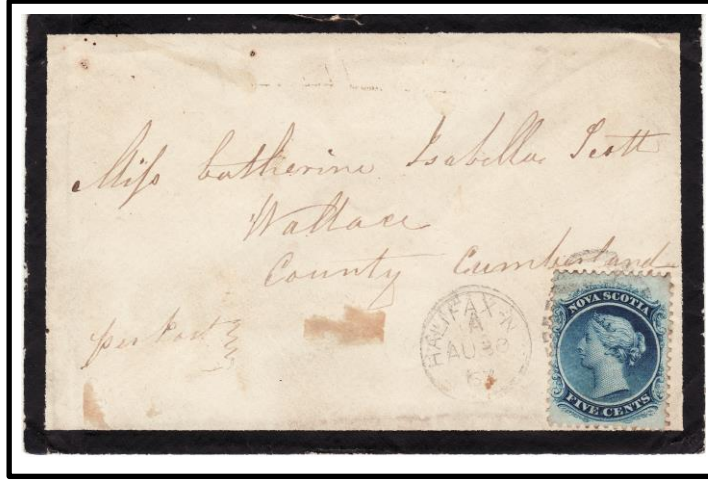 Miss Catherine Isabella Scott
Wallace
County Cumberland
per Post
HALIFAX-N
A
AU
NOVA SCOTIA
FIVE CENTS